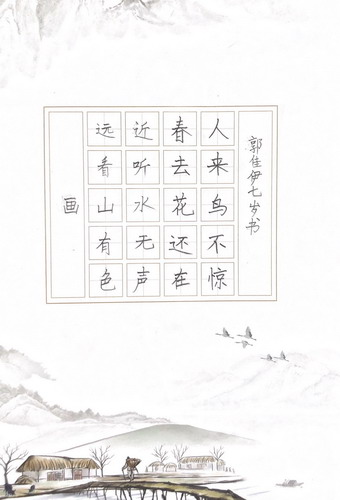 画
远看山有色
近听水无声
春去花还在
人来鸟不惊
郭佳伊七岁书